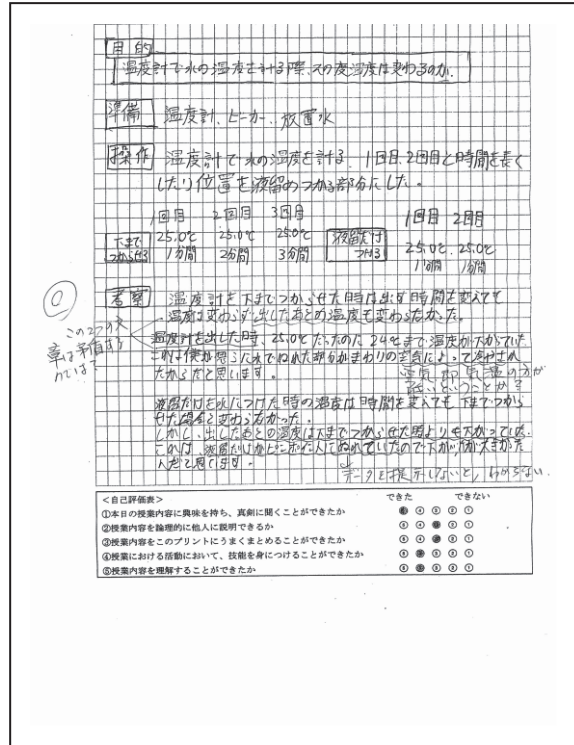 目的
温度計で水の温度を計る際、その度温度は変わるのか.
準備 温度計、ビーカー、放置水
操作 温度計で水の温度を計る. 1回目、2回目と時間を長く
したり位置を液留のつかる部分にした。
1回目 2回目 3回目 1回目 2回目
下まで 25.0℃ 25.0℃ 25.0℃ 液留だけ 25.0℃ 25.0℃
つからせる 1分間 2分間 3分間 つける 1分間 1分間
考察 温度計を下までつからせた時は出す時間を変えても
温度は変わらず出したあとの温度も変わらなかった。
この2つの文
章は矛盾する
のでは?
温度計を出した時、25.0℃だったのに24℃まで温度が下がっていた
これは僕が思うに水でぬれた部分がまわりの空気によって冷やされ
たからだと思います。
空気、即気温の方が
低いということか?
液留だけを水につけた時の温度は時間を変えても下までつから
せた場合と変わらなかった。
しかし、出したあとの温度は下までつからせた時よりも下がっていた.
これは、液留だけがぬれていたので下がり幅が大きかった
んだと思います。
データを提示しないと、わからない.
<自己評価表> できた できない
①本日の授業内容に興味を持ち、真剣に聞くことができたか ④ ③ ② ①
②授業内容を論理的に他人に説明できるか ⑤ ④ ② ①
③授業内容をこのプリントにうまくまとめることができたか ⑤ ④ ② ①
④授業における活動において、技能を身につけることができたか ⑤ ③ ② ①
⑤授業内容を理解することができたか ⑤ ③ ② ①